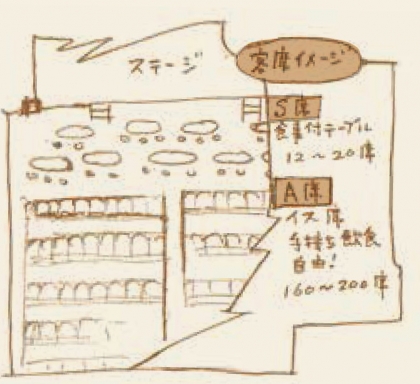 ステージ
客席イメージ
S席
食事付テーブル
12～20席
A席
イス席
手持ち飲食
自由!
160～200席